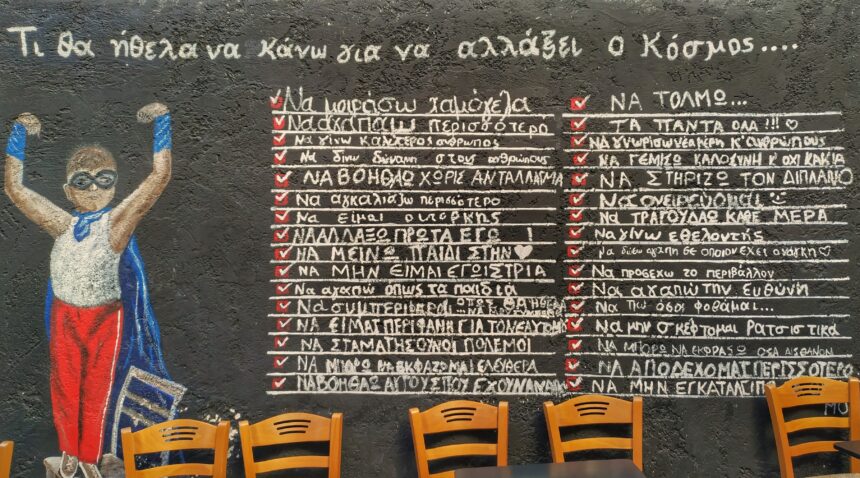 Τι θα ήθελα να κάνω για να αλλάξει ο Κόσμος....
Να μοιράσω χαμόγελα
Να αγαπάω περισσότερο
Να γίνω καλύτερος άνθρωπος
Να δίνω δύναμη στους ανθρώπους
ΝΑ ΒΟΗΘΑΩ ΧΩΡΙΣ ΑΝΤΑΛΛΑΓΜΑ
Να αγκαλιάζω περισσότερο
Να είμαι αυταρκης
ΝΑ ΑΛΛΑΞΩ ΠΡΩΤΑ ΕΓΩ !
ΝΑ ΜΕΙΝΩ ΠΑΙΔΙ ΣΤΗΝ
ΝΑ ΜΗΝ ΕΙΜΑΙ ΕΓΩΙΣΤΡΙΑ
Να αγαπάω όπως τα παιδιά
Να συμπεριφέρομαι ΟΠΩΣ ΘΑ ΗΘΕΛΑ
ΝΑ ΕΙΜΑΙ ΠΕΡΗΦΑΝΗ ΓΙΑ ΤΟΝ ΕΑΥΤΟ
ΝΑ ΣΤΑΜΑΤΗΣΟΥΝ ΟΙ ΠΟΛΕΜΟΙ
ΝΑ ΜΠΟΡΩ ΝΑ ΕΚΦΑΖΟΜΑΙ ΕΛΕΥΘΕΡΑ
ΝΑ ΒΟΗΘΑΩ ΑΥΤΟΥΣ ΠΟΥ ΕΧΟΥΝ ΑΝΑΓΚΗ
ΝΑ ΤΟΛΜΩ...
ΤΑ ΠΑΝΤΑ ΟΛΑ!!!
ΝΑ ΓΝΩΡΙΣΩ ΝΕΑ ΜΕΡΗ Κ' ΑΝΘΡΩΠΟΥΣ
ΝΑ ΓΕΜΙΣΩ ΚΑΛΟΣΥΝΗ Κ' ΟΧΙ ΚΑΚΙΑ
ΝΑ ΣΤΗΡΙΖΩ ΤΟΝ ΔΙΠΛΑΝΟ
Να ονειρεύομαι
ΝΑ ΤΡΑΓΟΥΔΑΩ ΚΑΘΕ ΜΕΡΑ
Να γίνω εθελοντής
Να δώσω αγάπη σε όποιον έχει ανάγκη
Να προσέχω το περιβάλλον
Να αγαπώ την ευθύνη
Να πω όσα φοβάμαι...
Να μην σκέφτομαι ρατσιστικά
ΝΑ ΜΠΟΡΩ ΝΑ ΕΚΦΡΑΣΩ ΟΣΑ ΑΙΣΘΑΝΟΜ
ΝΑ ΑΠΟΔΕΧΟΜΑΙ ΠΕΡΙΣΣΟΤΕΡΟ
ΝΑ ΜΗΝ ΕΓΚΑΤΑΛΕΙΠ
ΜΟ